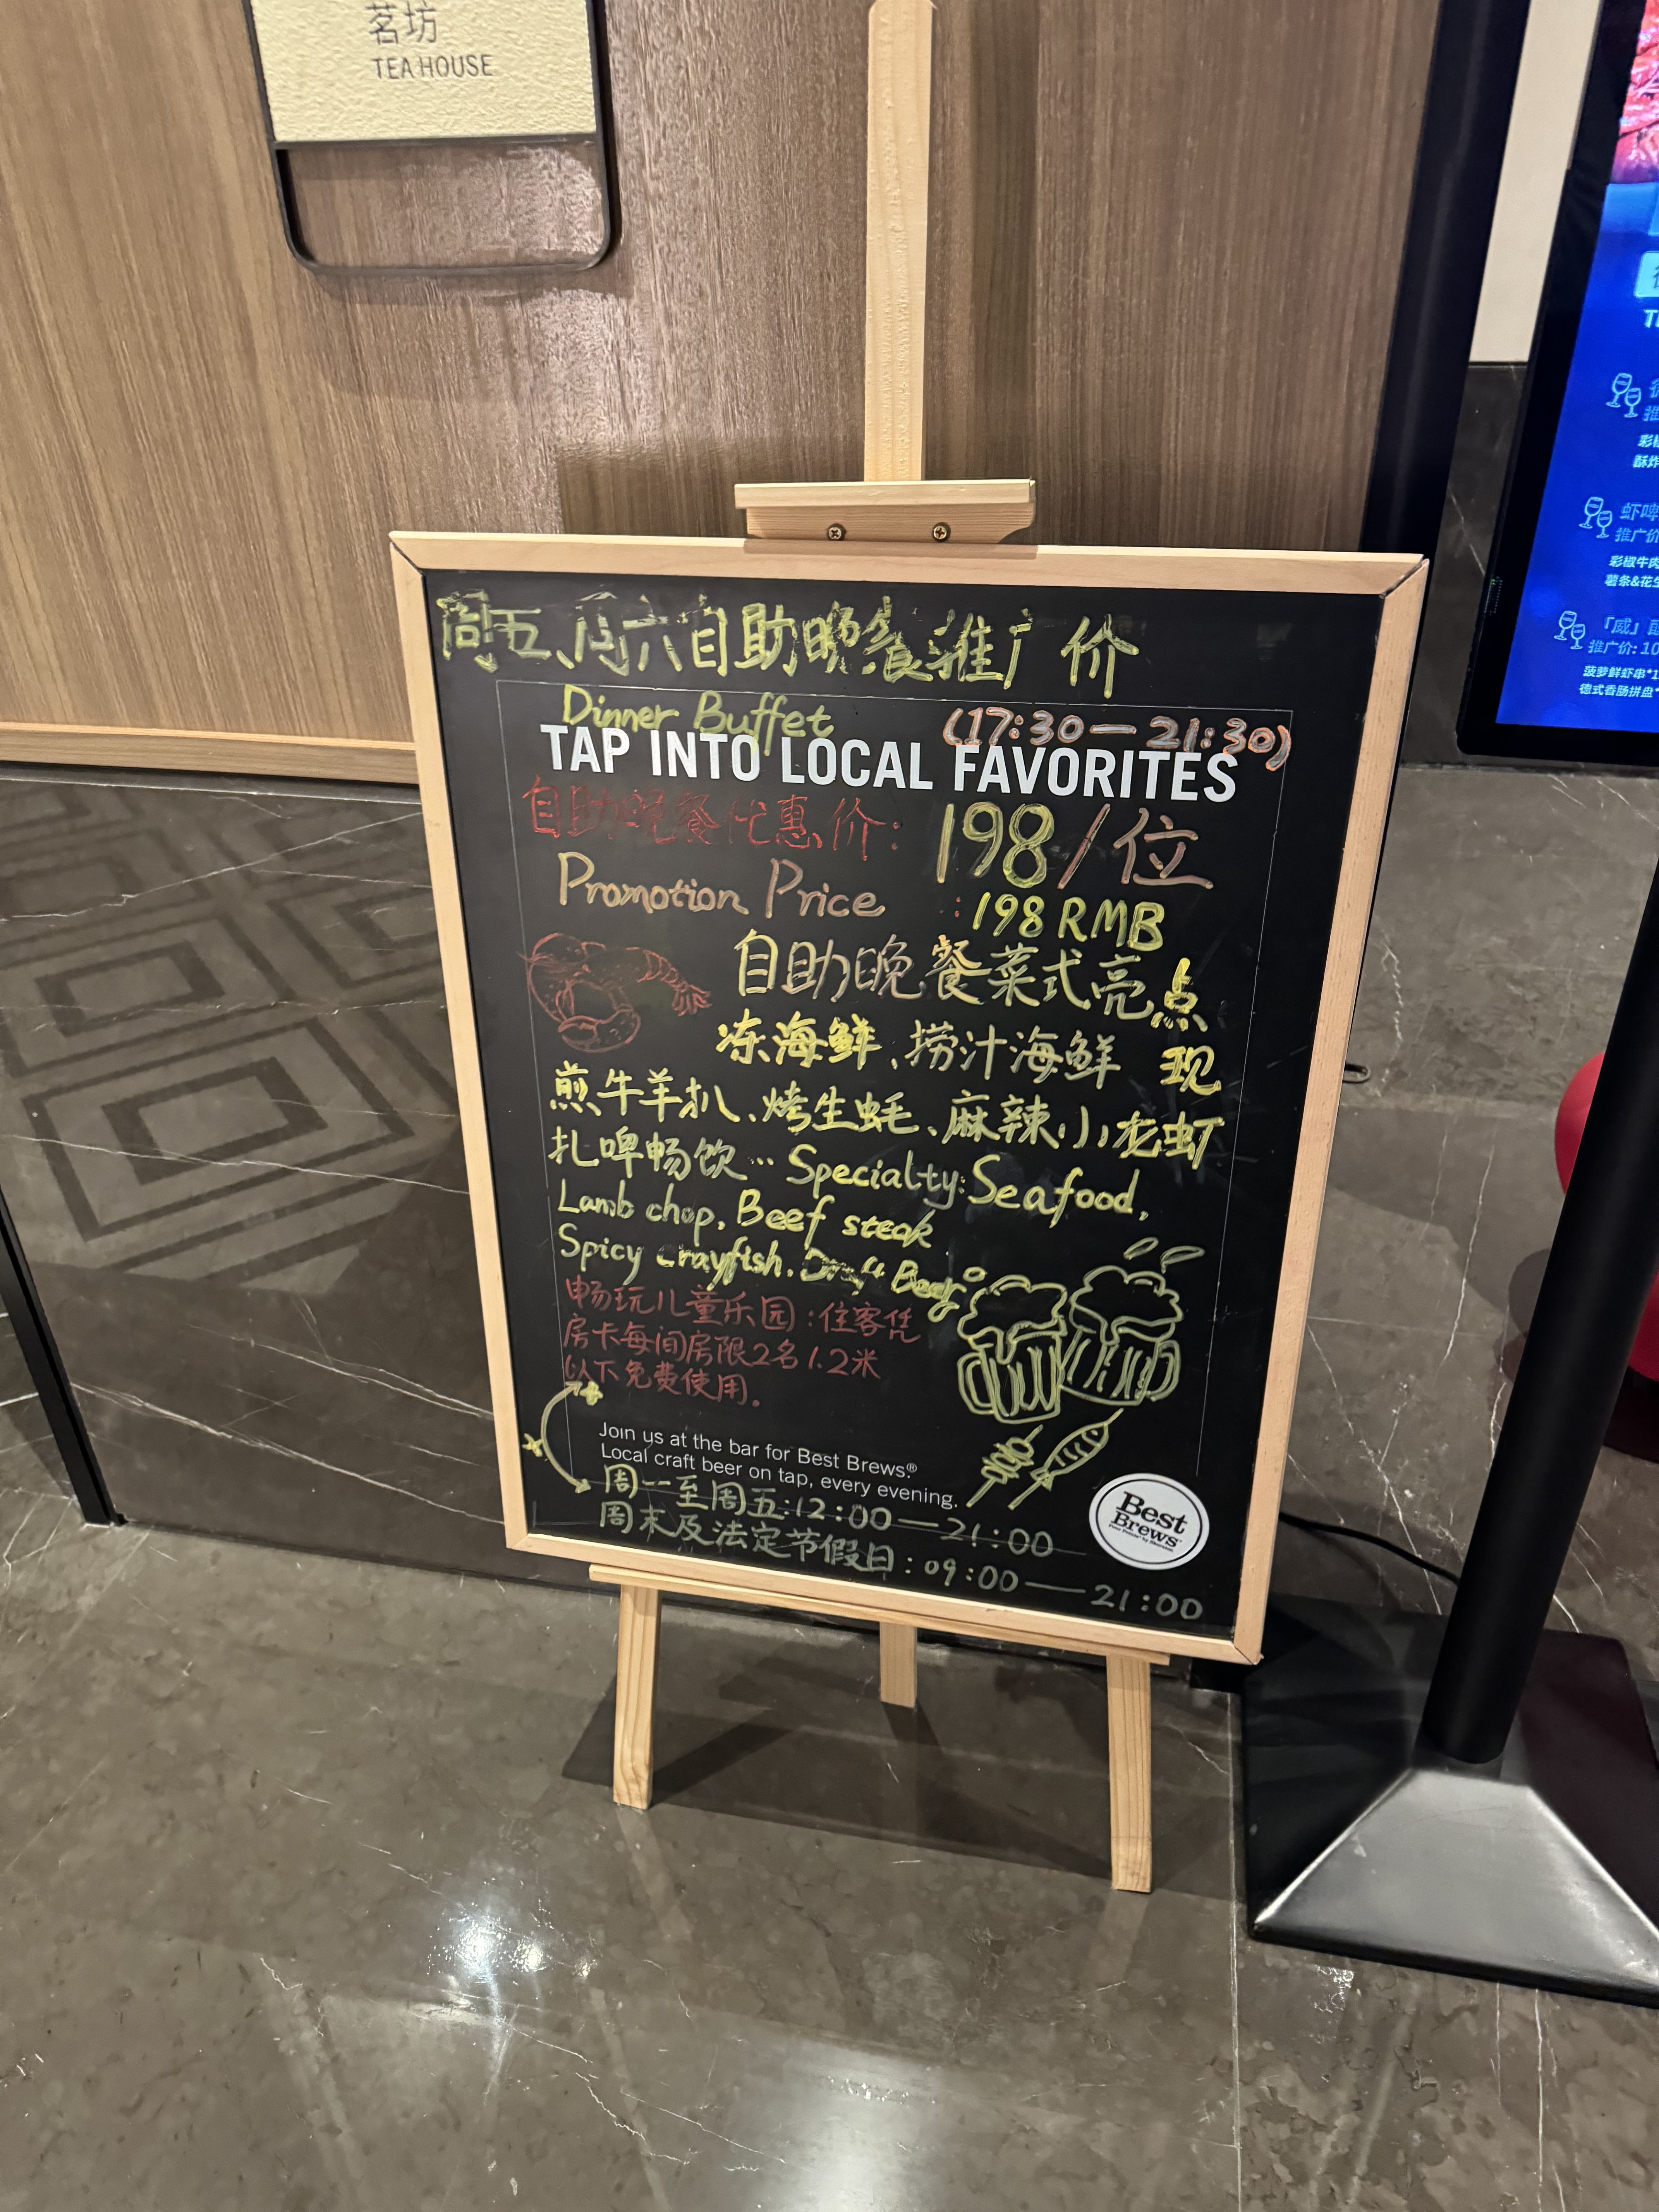 茗坊
TEA HOUSE
周五、周六自助晚餐推广价
Dinner Buffet (17:30—21:30)
TAP INTO LOCAL FAVORITES
自助晚餐优惠价: 198/位
Promotion Price : 198 RMB
自助晚餐菜式亮点
冻海鲜、捞汁海鲜 现
煎牛羊扒、烤生蚝、麻辣小龙虾
扎啤畅饮… Specialty: Seafood,
Lamb chop, Beef steak
Spicy crayfish. Draft Beer
畅玩儿童乐园:住客凭
房卡每间房限2名1.2米
以下免费使用。
Join us at the bar for Best Brews.®
Local craft beer on tap, every evening.
周一至周五:12:00—21:00
周末及法定节假日:09:00—21:00
Best
Brews
虾啤
推广价
彩椒牛肉
薯条&花生
「威」
推广价: 10
菠萝鲜虾串*1
德式香肠拼盘*